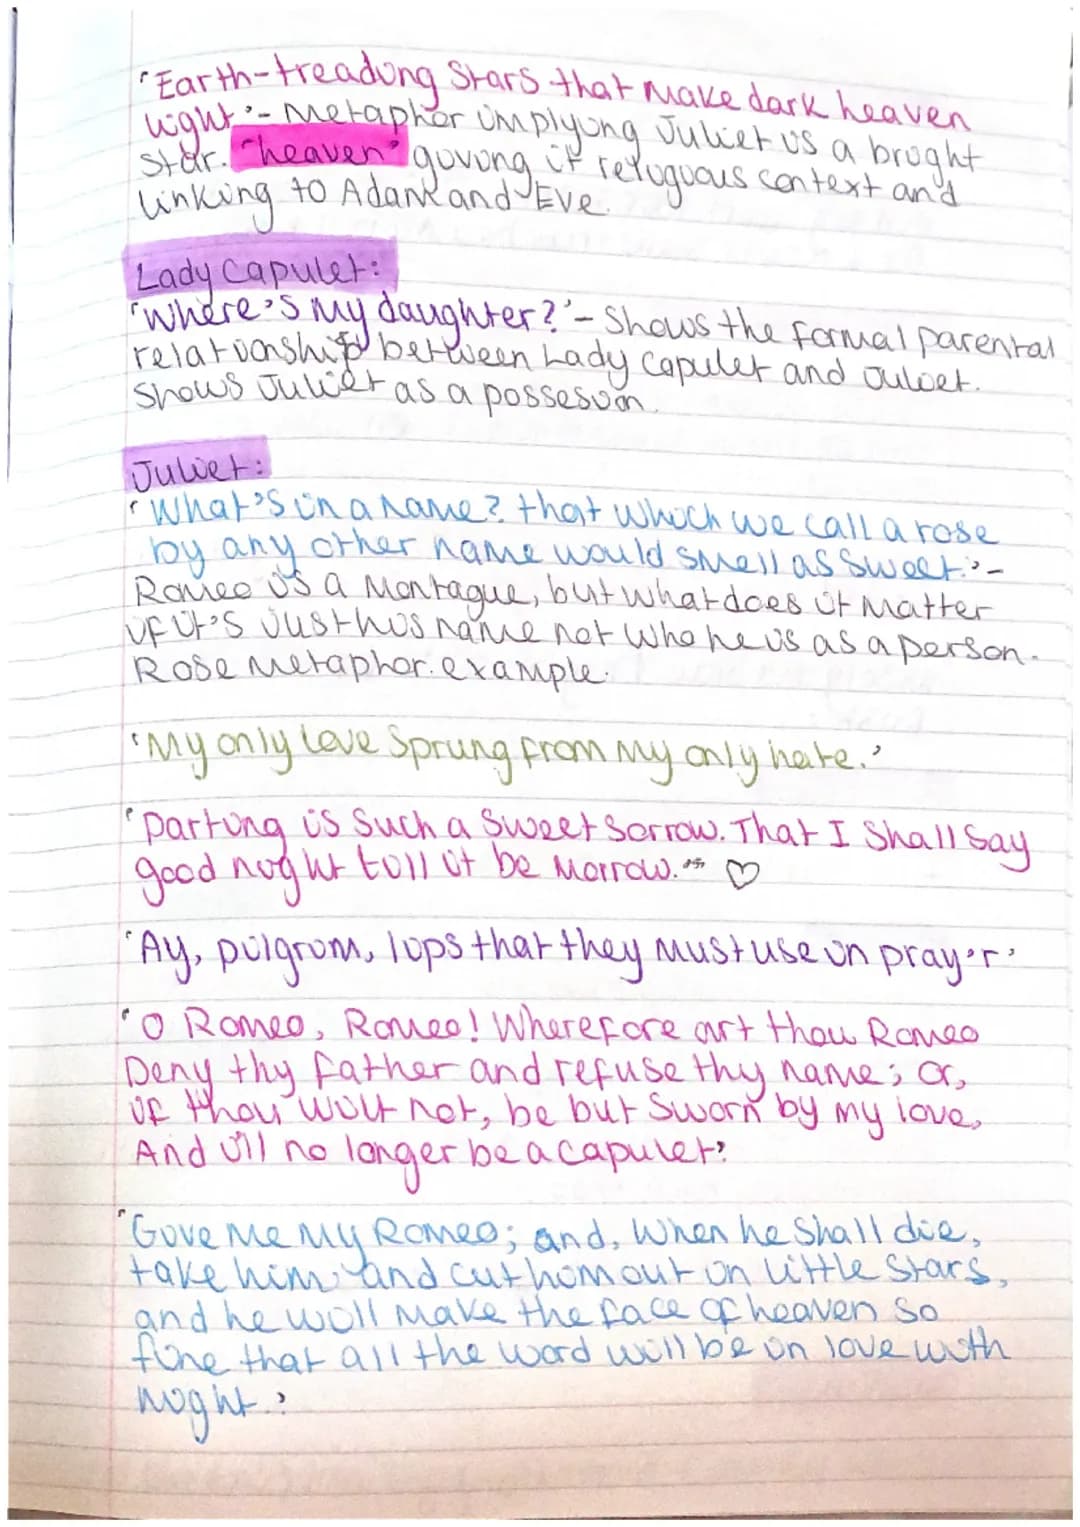 'Earth-treading stars that make dark heaven
light'- Metaphor implying Juliet is a bright
star. "heaven" giving it religious context and
linking to Adam and Eve.
Lady Capulet:
'Where's my daughter?'- Shows the formal parental
relationship between Lady Capulet and Juliet.
Shows Juliet as a possesion.
Juliet:
'What's in a name? that which we call a rose
by any other name would smell as sweet.'-
Romeo is a Montague, but what does it matter
if it's just his name not who he is as a person.
Rose metaphor. example.
'My only love sprung from my only hate.'
'Parting is such a sweet sorrow. That I shall say
good night till it be morrow." ♡
'Ay, pilgrim, lips that they must use in prayer'
'O Romeo, Romeo! Wherefore art thou Romeo
Deny thy father and refuse thy name; or,
if thou wilt not, be but sworn by my love,
And i'll no longer be a capulet'
'Give me my Romeo; and, when he shall die,
take him and cut him out in little stars,
and he will make the face of heaven so
fine that all the word will be in love with
night.'